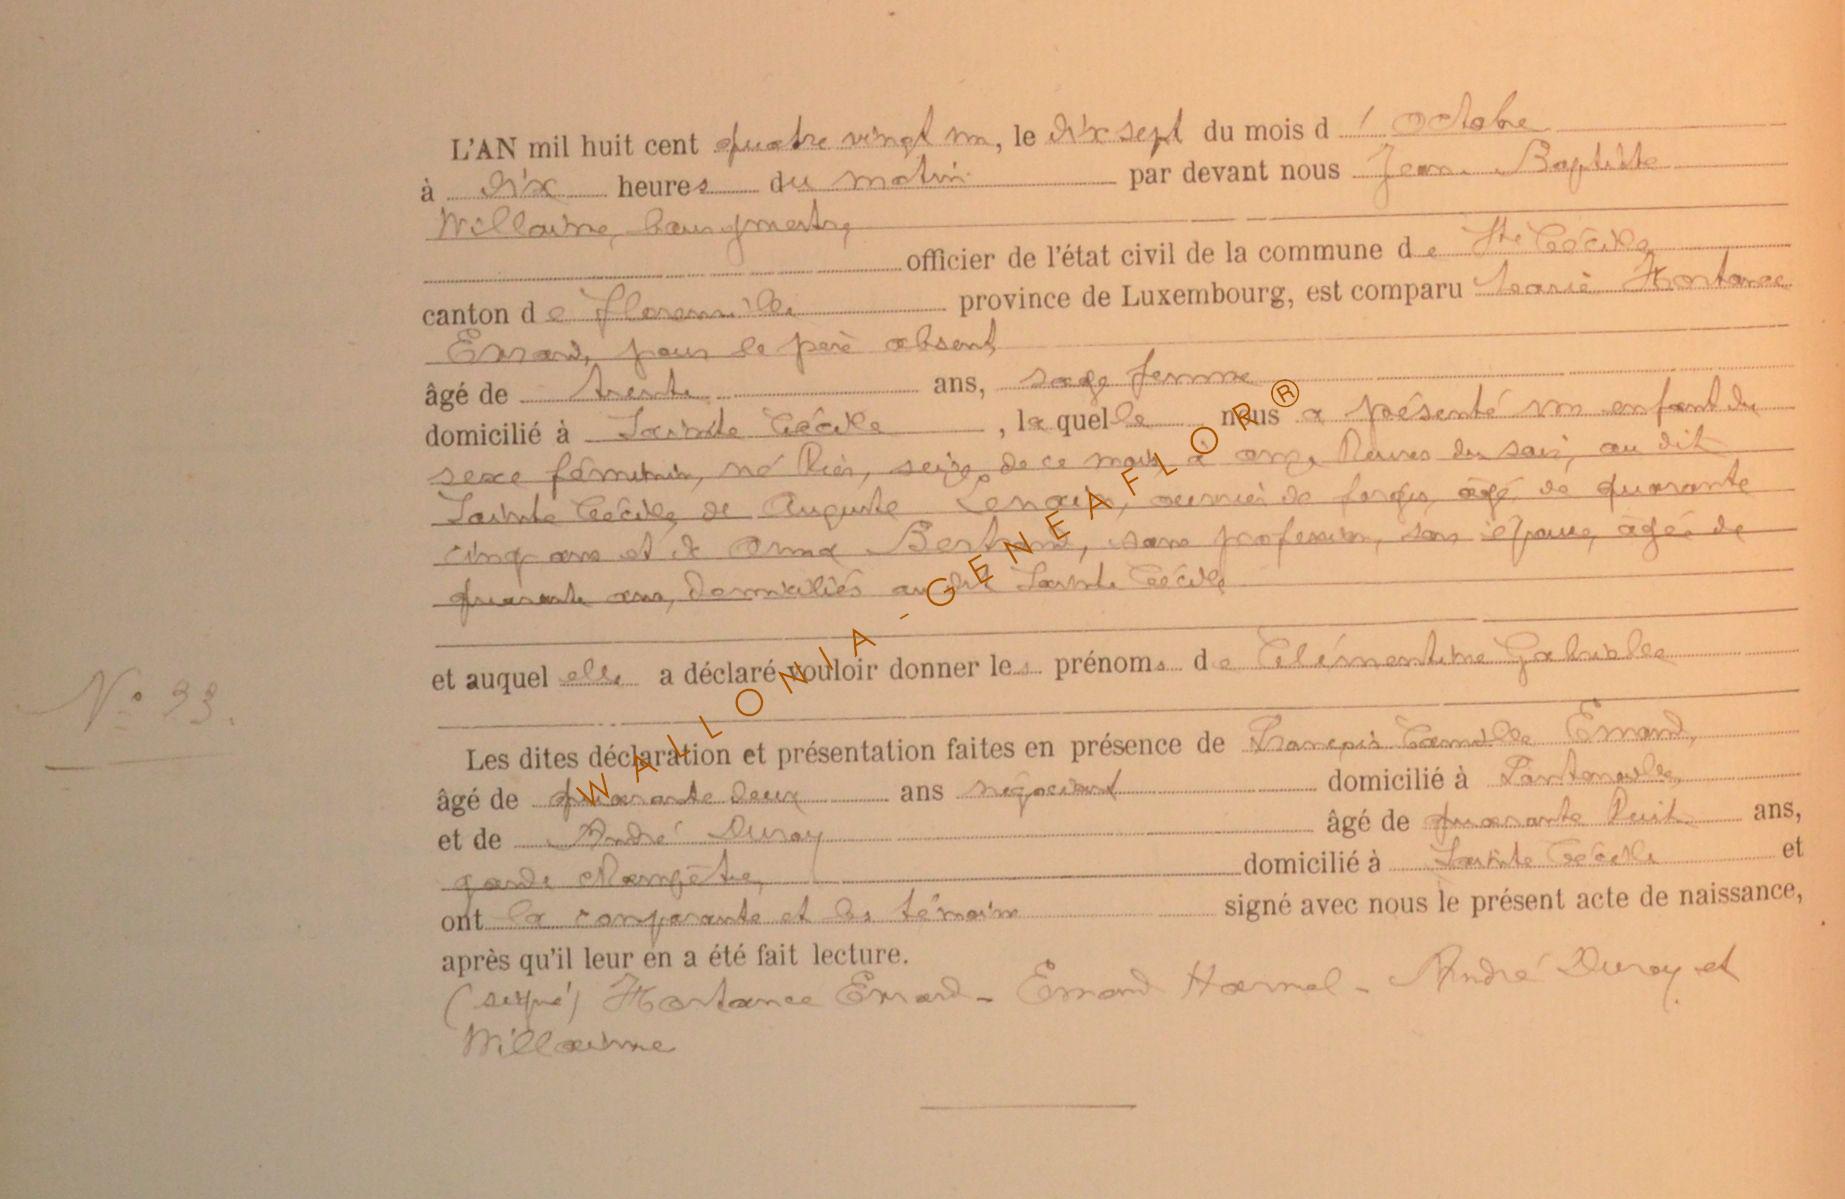 L'AN mil huit cent quatre vingt un, le dix sept du mois d' octobre
à dix heures du matin par devant nous Jean Baptiste
Willaime, bourgmestre,
officier de l'état civil de la commune de Ste Cécile
canton de Florenville province de Luxembourg, est comparu Marie Hortance
Errard, pour le père absent
âgé de trente ans, sage femme
domicilié à Sainte Cécile, la quelle nous a présenté un enfant du
sexe féminin, né hier, seize de ce mois à onze heures du soir, au dit
Sainte Cécile de Auguste ouvrier de forges, âgé de quarante
cinq ans et de Anna Bertrand, sans profession, son épouse, âgée de
quarante ans, domiciliés au dit Sainte Cécile
et auquel elle a déclaré vouloir donner les prénoms de Clémentine Gabrielle
N° 33.
Les dites déclaration et présentation faites en présence de François Camille Errard,
âgé de quarante deux ans négociant domicilié à
et de André Duroy âgé de quarante huit ans,
garde champêtre, domicilié à Sainte Cécile et
ont la comparante et les témoins signé avec nous le présent acte de naissance,
après qu'il leur en a été fait lecture.
(signé) Hortance Errard - Errard Hamel - André Duroy et
Willaime
WALLONIA-GENEAFLOR®